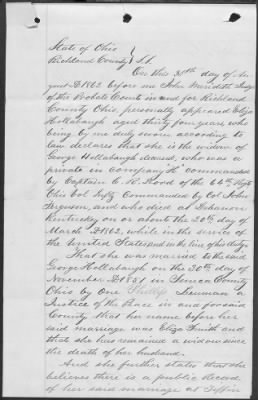 State of Ohio }
Richland County } S.S.
On this 30th day of Au
gust A.D. 1862 before me John Meredith Judge
of the Probate Court in and for Richland
County Ohio, personally appeared Eliza
Hollabaugh aged thirty four years who
being by me duly sworn according to
law declares that she is the widow of
George Hollabaugh deceased, who was a
private in Company "H" commanded
by Captain C. R. Rood of the 64th Regt
Ohio Vol Infty Commanded by Col John
Ferguson, and who died at Lebanon
Kentucky on or about the 20th day of
March A.D. 1862, while in the service of
the United States and in the line of his duty.
That she was married to the said
George Hollabaugh on the 30th day of
November A.D. 1851 in Seneca County
Ohio by One Phillip
Justice of the Peace in and for said
County that her name before her
said marriage was Eliza Smith and
that she has remained a widow since
the death of her husband.
And she further states that she
believes there is a public Record
of her said marriage at Tiffin